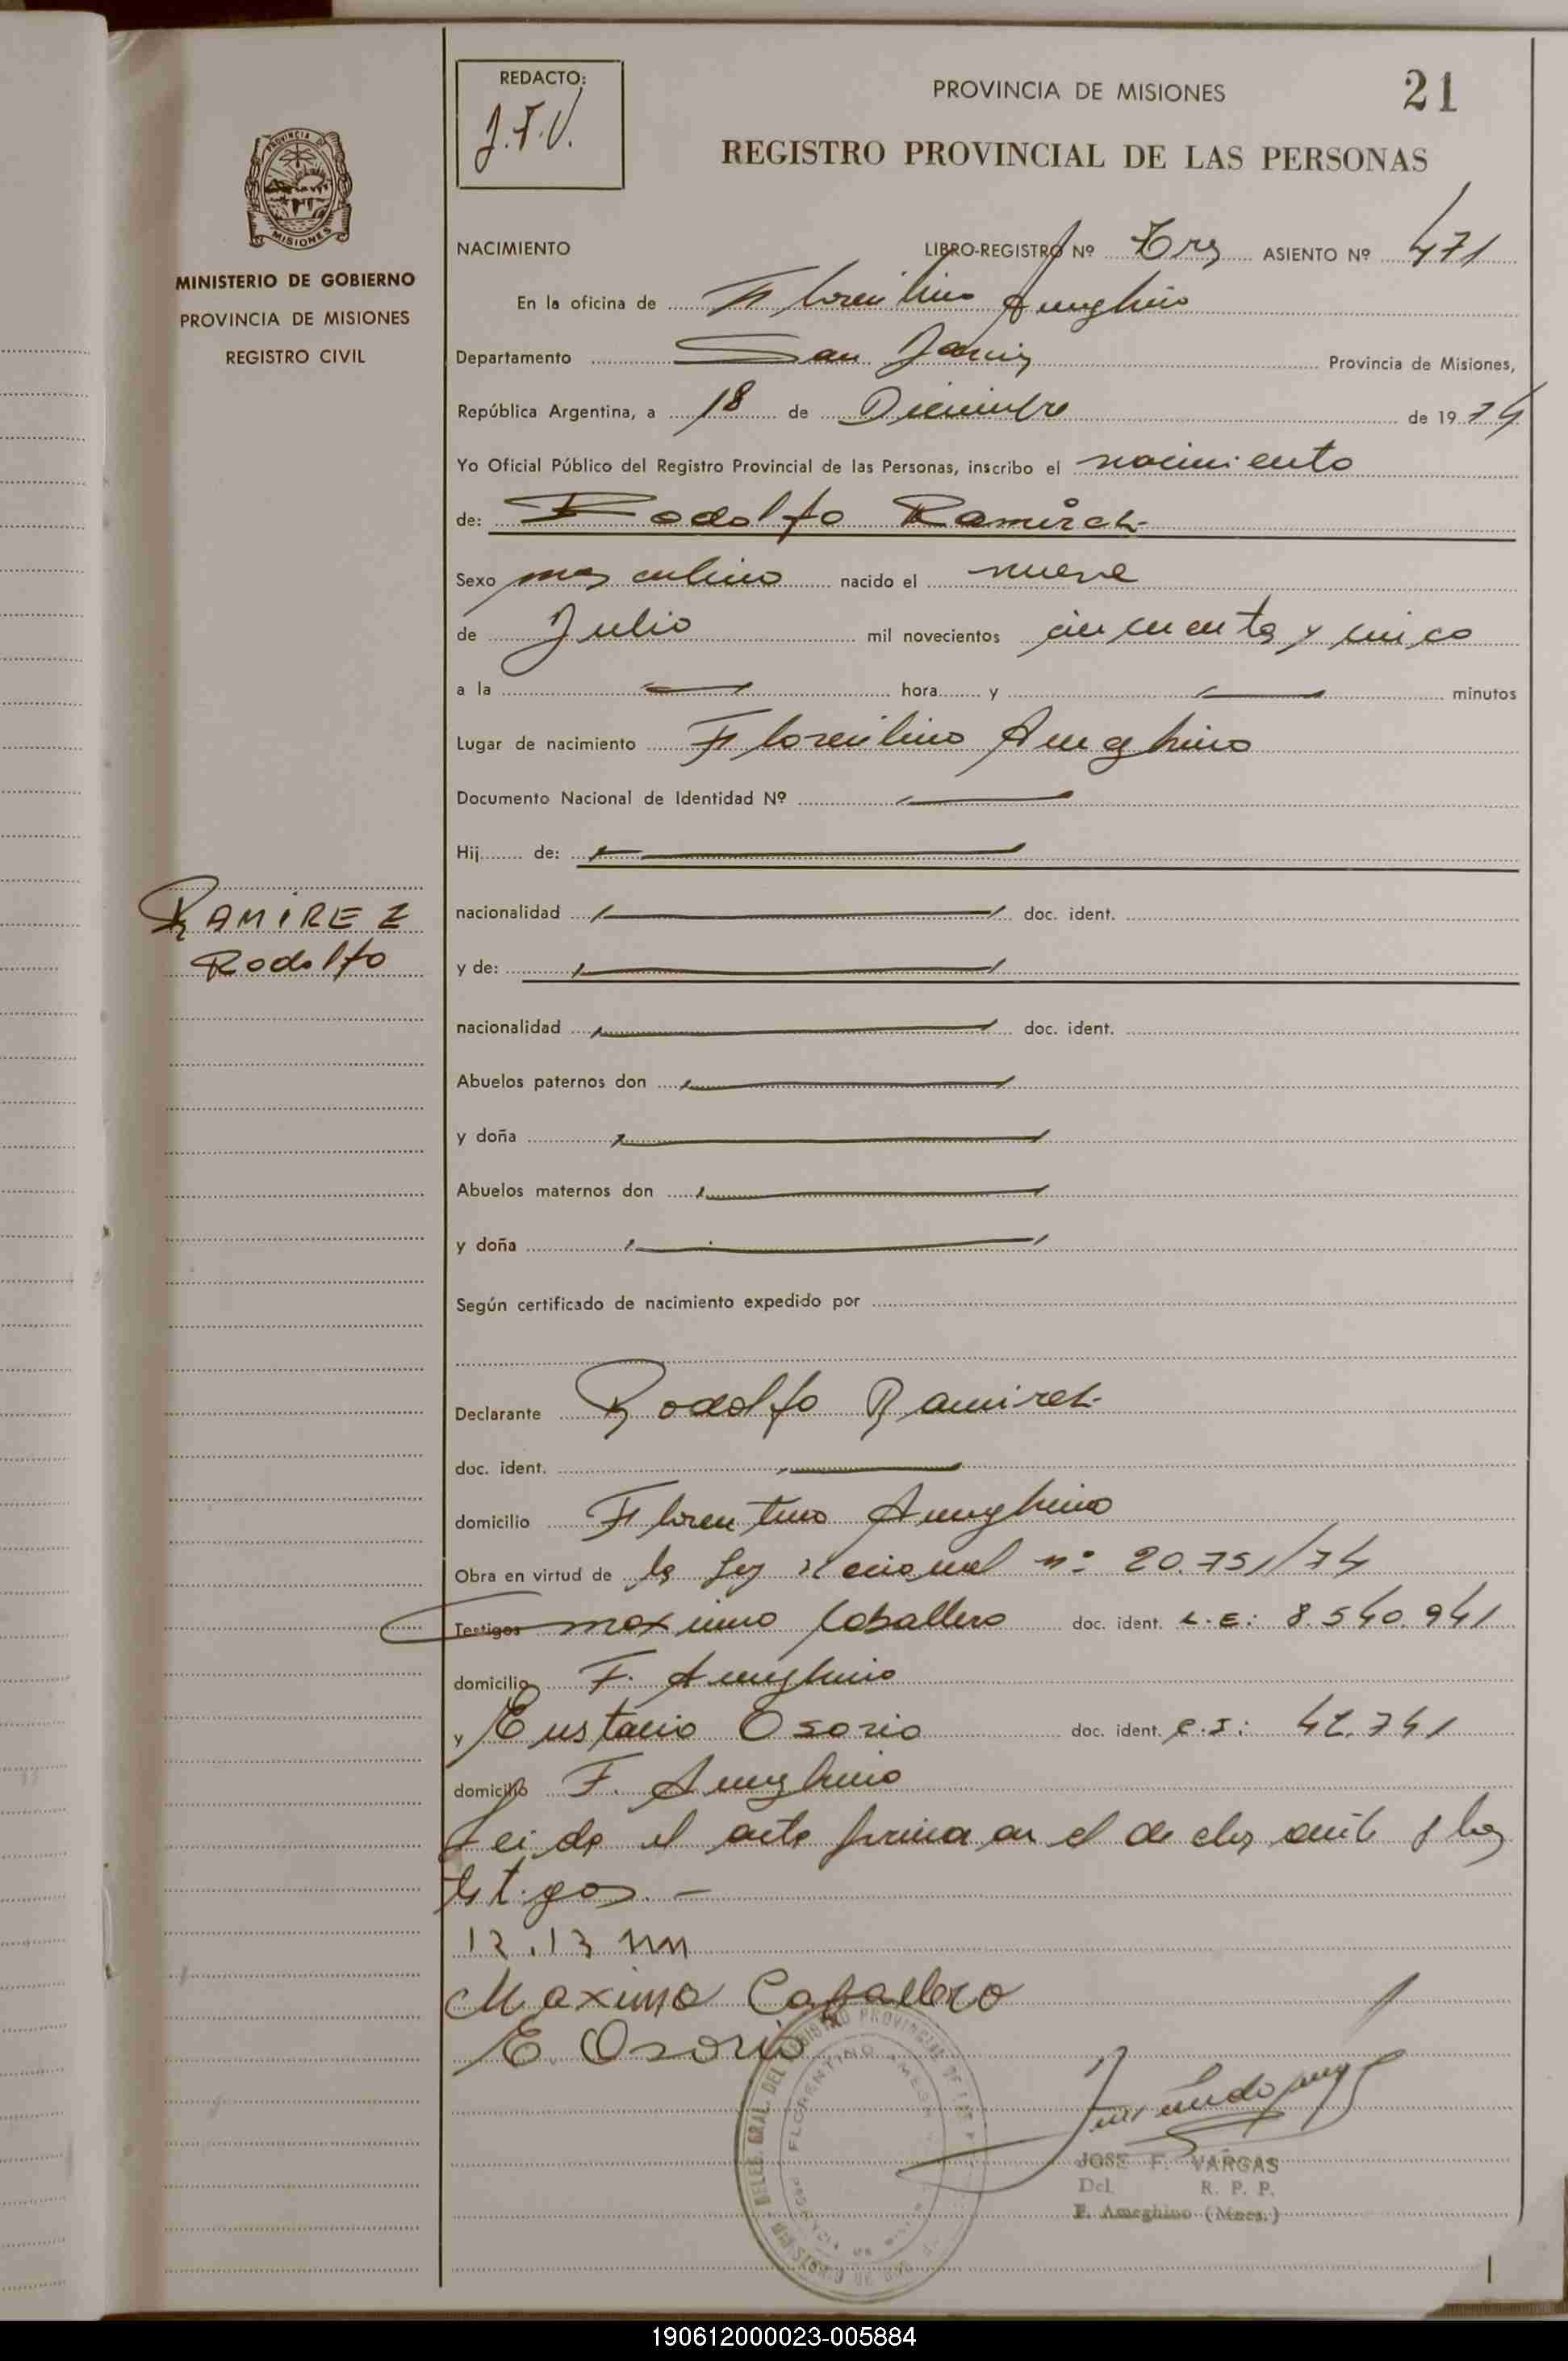 REDACTO:
J.F.V.
PROVINCIA DE MISIONES
21
REGISTRO PROVINCIAL DE LAS PERSONAS
PROVINCIA DE
MISIONES
MINISTERIO DE GOBIERNO
PROVINCIA DE MISIONES
REGISTRO CIVIL
NACIMIENTO LIBRO-REGISTRO Nº Tres ASIENTO Nº 471
En la oficina de Florentino Ameghino
Departamento San Javier Provincia de Misiones,
República Argentina, a 18 de Diciembre de 1974
Yo Oficial Público del Registro Provincial de las Personas, inscribo el nacimiento
de: Rodolfo Ramirez
Sexo masculino nacido el nueve
de Julio mil novecientos cincuenta y cinco
a la — hora y — minutos
Lugar de nacimiento Florentino Ameghino
Documento Nacional de Identidad Nº —
Hij de: —
RAMIREZ
Rodolfo
nacionalidad — doc. ident.
y de: —
nacionalidad — doc. ident.
Abuelos paternos don —
y doña —
Abuelos maternos don —
y doña —
Según certificado de nacimiento expedido por
Declarante Rodolfo Ramirez
doc. ident. —
domicilio Florentino Ameghino
Obra en virtud de la Ley Nacional nº 20.751/74
Testigos maximo Caballero doc. ident. L.E.: 8.540.941
domicilio F. Ameghino
y Eustacio Osorio doc. ident. C.I.: 42.741
domicilio F. Ameghino
Leida el acta firman el y los
testigos. —
Maximo Caballero
E. Osorio
JOSE F. VARGAS
Del. R. P. P.
F. Ameghino (Mnes.)
190612000023-005884